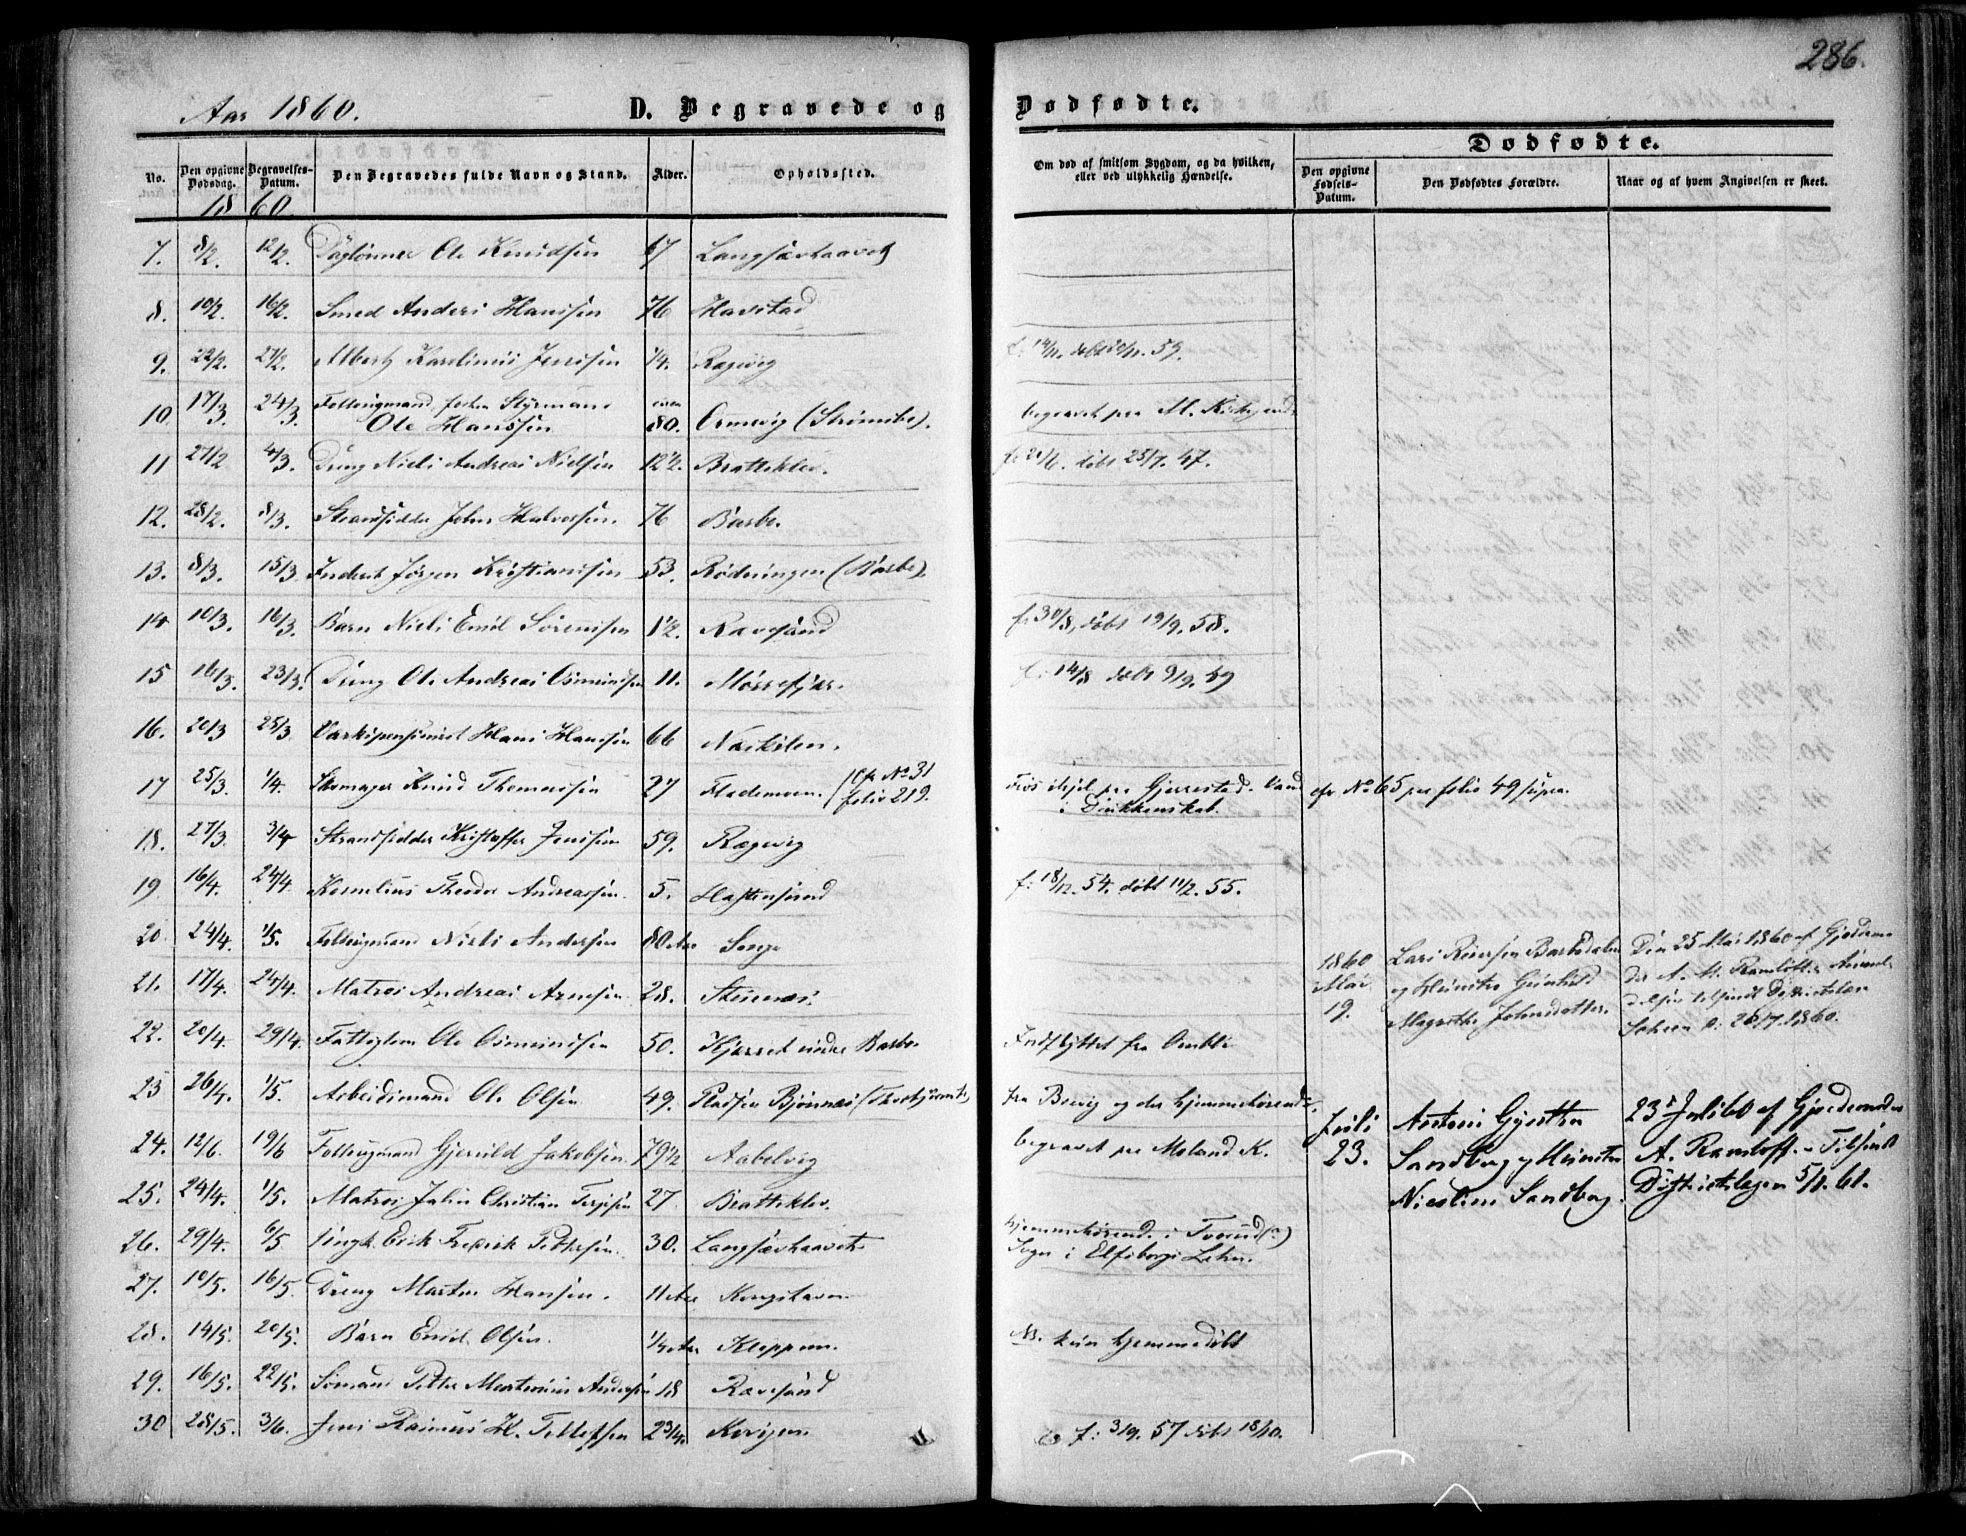 286.
Aar 1860. D. Begravede og Dødfødte.
No. Den opgivne Dødsdag. Begravelses-Datum. Den Begravedes fulde Navn og Stand. Alder. Opholdssted. Om død af smitsom Sygdom, og da hvilken, eller ved ulykkelig Hændelse.
Dødfødte.
Den opgivne Fødsels-Datum. Den Dødfødtes Forældre. Naar og af hvem Angivelsen er skeet.
1860
7. 8/2 12/2. Daglønner Ole Knudsen 67 Langsævhaavet
8. 10/2. 16/2. Smed Anders Hanssen 76 Havstad
9. 22/2. 27/2. Albert Karelinius Jenssen 1/4. Ragevig f: 14/11. døbt 20/11. 59.
10. 17/3 24/3. Fattigmand Styrmand
Ole Hanssen circa 80. Ormevig (Strømsbo). begravet paa M. Kirkegaard
11 27/2 4/3. Dreng Niels Andreas Nielsen 12 1/2. Bratteklev. f: 20/6. døbt 25/7. 47.
12. 28/2. 8/3. Strandsidder John Halvorsen. 76 Barbo.
13. 8/3. 15/3 Inderst Jørgen Kristianssen 53. Rødningen (Barbo).
14 10/3. 16/3. Barn Niels Emil Sørenssen 1 1/2. Ravesand f: 30/8, døbt 19/9. 58.
15 16/3. 23/3. Dreng Ole Andreas Osmundsen 11. Mørrefjær. f: 14/8 døbt 9/9. 49
16. 20/3 25/3 Værkspensionist Hans Hanssen 66 Naskilen.
17 25/3. 1/4. Skomager Knud Thomassen 27 Flademoen. (cfr No 31 folio 219. Frøs ihjel paa Gjerrestad-Vand
i Drukkenskab. cfr No 65 paa folio 49 supra.
18. 27/3. 3/4 Strandsidder Kristoffer Jenssen 59. Ragevig
19 16/4. 24/4 Kornelius Theodor Andreassen. 5. Hastensund f: 18/12. 54. døbt 11/2. 55.
20. 24/4. 1/5. Fattigmand Niels Andersen 80 Aar Songe
21. 17/4. 24/4. Matros Andreas Arnesen. 28. Steinnæs.
1860 Mai 19. Lars Reiersen Barbodalen
og Hustru Gunhild
Margrethe Johnsdatter. Den 25 Mai 1860 af Gjordemo-
der A. M. Ramløff.
tilsendt Districtslæge
22. 20/4. 29/4. Fattiglem Ole Osmundsen 50. Kjærret under Barbo Indflyttet fra Omli
23 26/4. 1/5. Arbeidsmand Ole Olsen 49. Pladsen Bjønnæs Fra Brevig og der hjemmehørende.
24. 12/6. 19/6 Fattigmand Gjeruld Jakobsen. 79 1/2 Aabelvig begravet paa Moland K.
Juli 23. Antoni Gysther
Sandberg og Hustru
Nicoline Sandberg. 23de Juli 60 af Gjordemoder
A. Ramløff. - Tilsendt
Districtslægen 5/1. 61.
25. 24/4. 1/5. Matros Julius Christian Terjesen 27 Bratteklev.
26. 29/4. 6/5 Ungk. Erik Fredrik Pettersen. 30. Langsævhaavet hjemmehørende i Torsrud(?)
Sogn i Elfsborgs Lehn.
27. 10/5. 16/5. Dreng Martin Hansen. 11 Aar Kongshavn
28. 14/5. 20/5. Barn Emil Olsen. Kloppen. NB. kun hjemmedøbt
29. 16/5. 22/5. Sømand Petter Andersen 18 Ravesand
30 28/5. 3/6. Jens Rasmus H. Tellefsen 2 3/4. Kvigen. f: 3/9. 57 døbt 18/10.